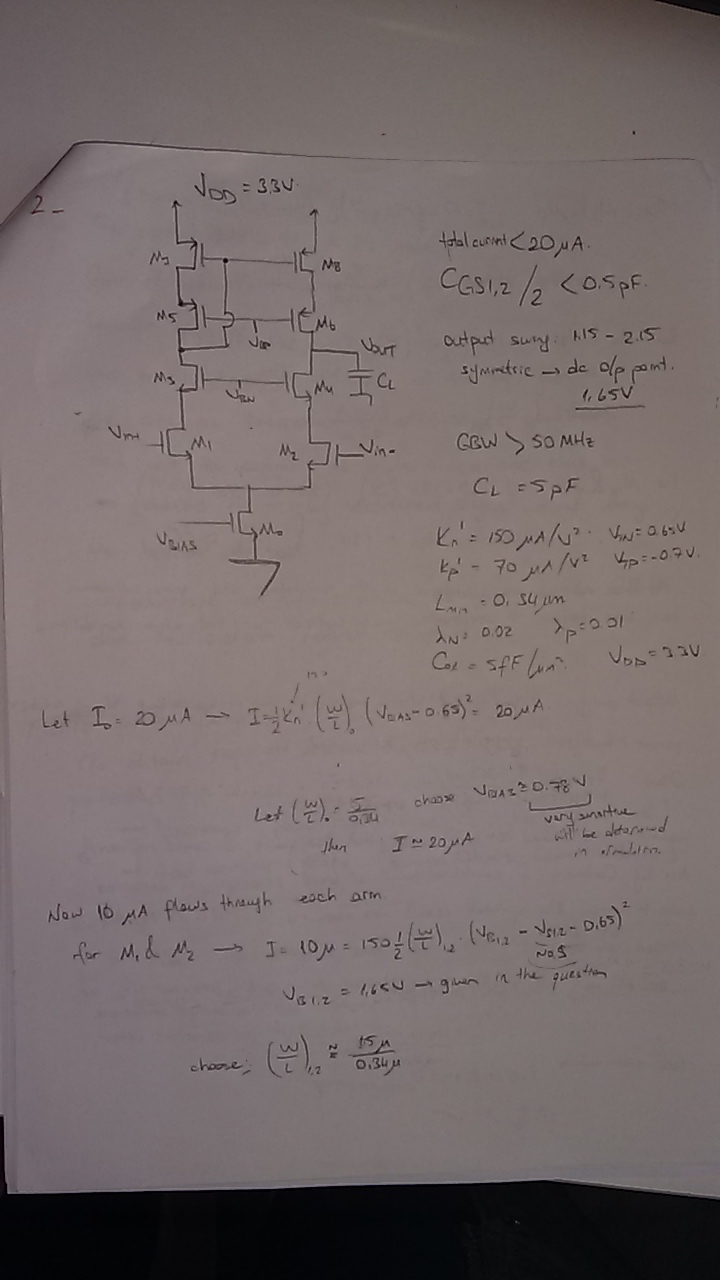 2-
VDD = 3.3V.
M7
M8
M5
M6
VBP
VOUT
M3
VBN
M4
CL
Vin+
M1
M2
Vin-
VBIAS
M0
total current < 20 µA.
CGS1,2 / 2 < 0.5 pF.
output swing. 1.15 - 2.15
symmetric → dc o/p point.
1,65V
GBW > 50 MHz
CL = 5pF
Kn' = 150 µA/V². VTN = 0.65V
Kp' = 70 µA/V² VTP = -0.7V.
Lmin = 0,34 µm
λN = 0.02 λp = 0.01
Cox = 5fF/µm². VDD = 3.3V
Let I0 = 20 µA → I = 1/2 Kn' (W/L)0 (VBIAS - 0.65)² = 20 µA
Let (W/L)0 = 5/0,34 choose VBIAS ≅ 0.78V
very sensitive
will be determined
in simulation.
then I ≈ 20 µA
Now 10 µA flows through each arm.
for M1 & M2 → I = 10µ = 150 1/2 (W/L)1,2 . (VB1,2 - VS1,2 - 0,65)²
VB1,2 = 1,65V → given in the question
choose: (W/L)1,2 ≅ 15µ/0,34µ